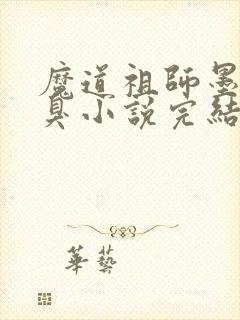 魔道祖師墨
臭小說完結
華藝